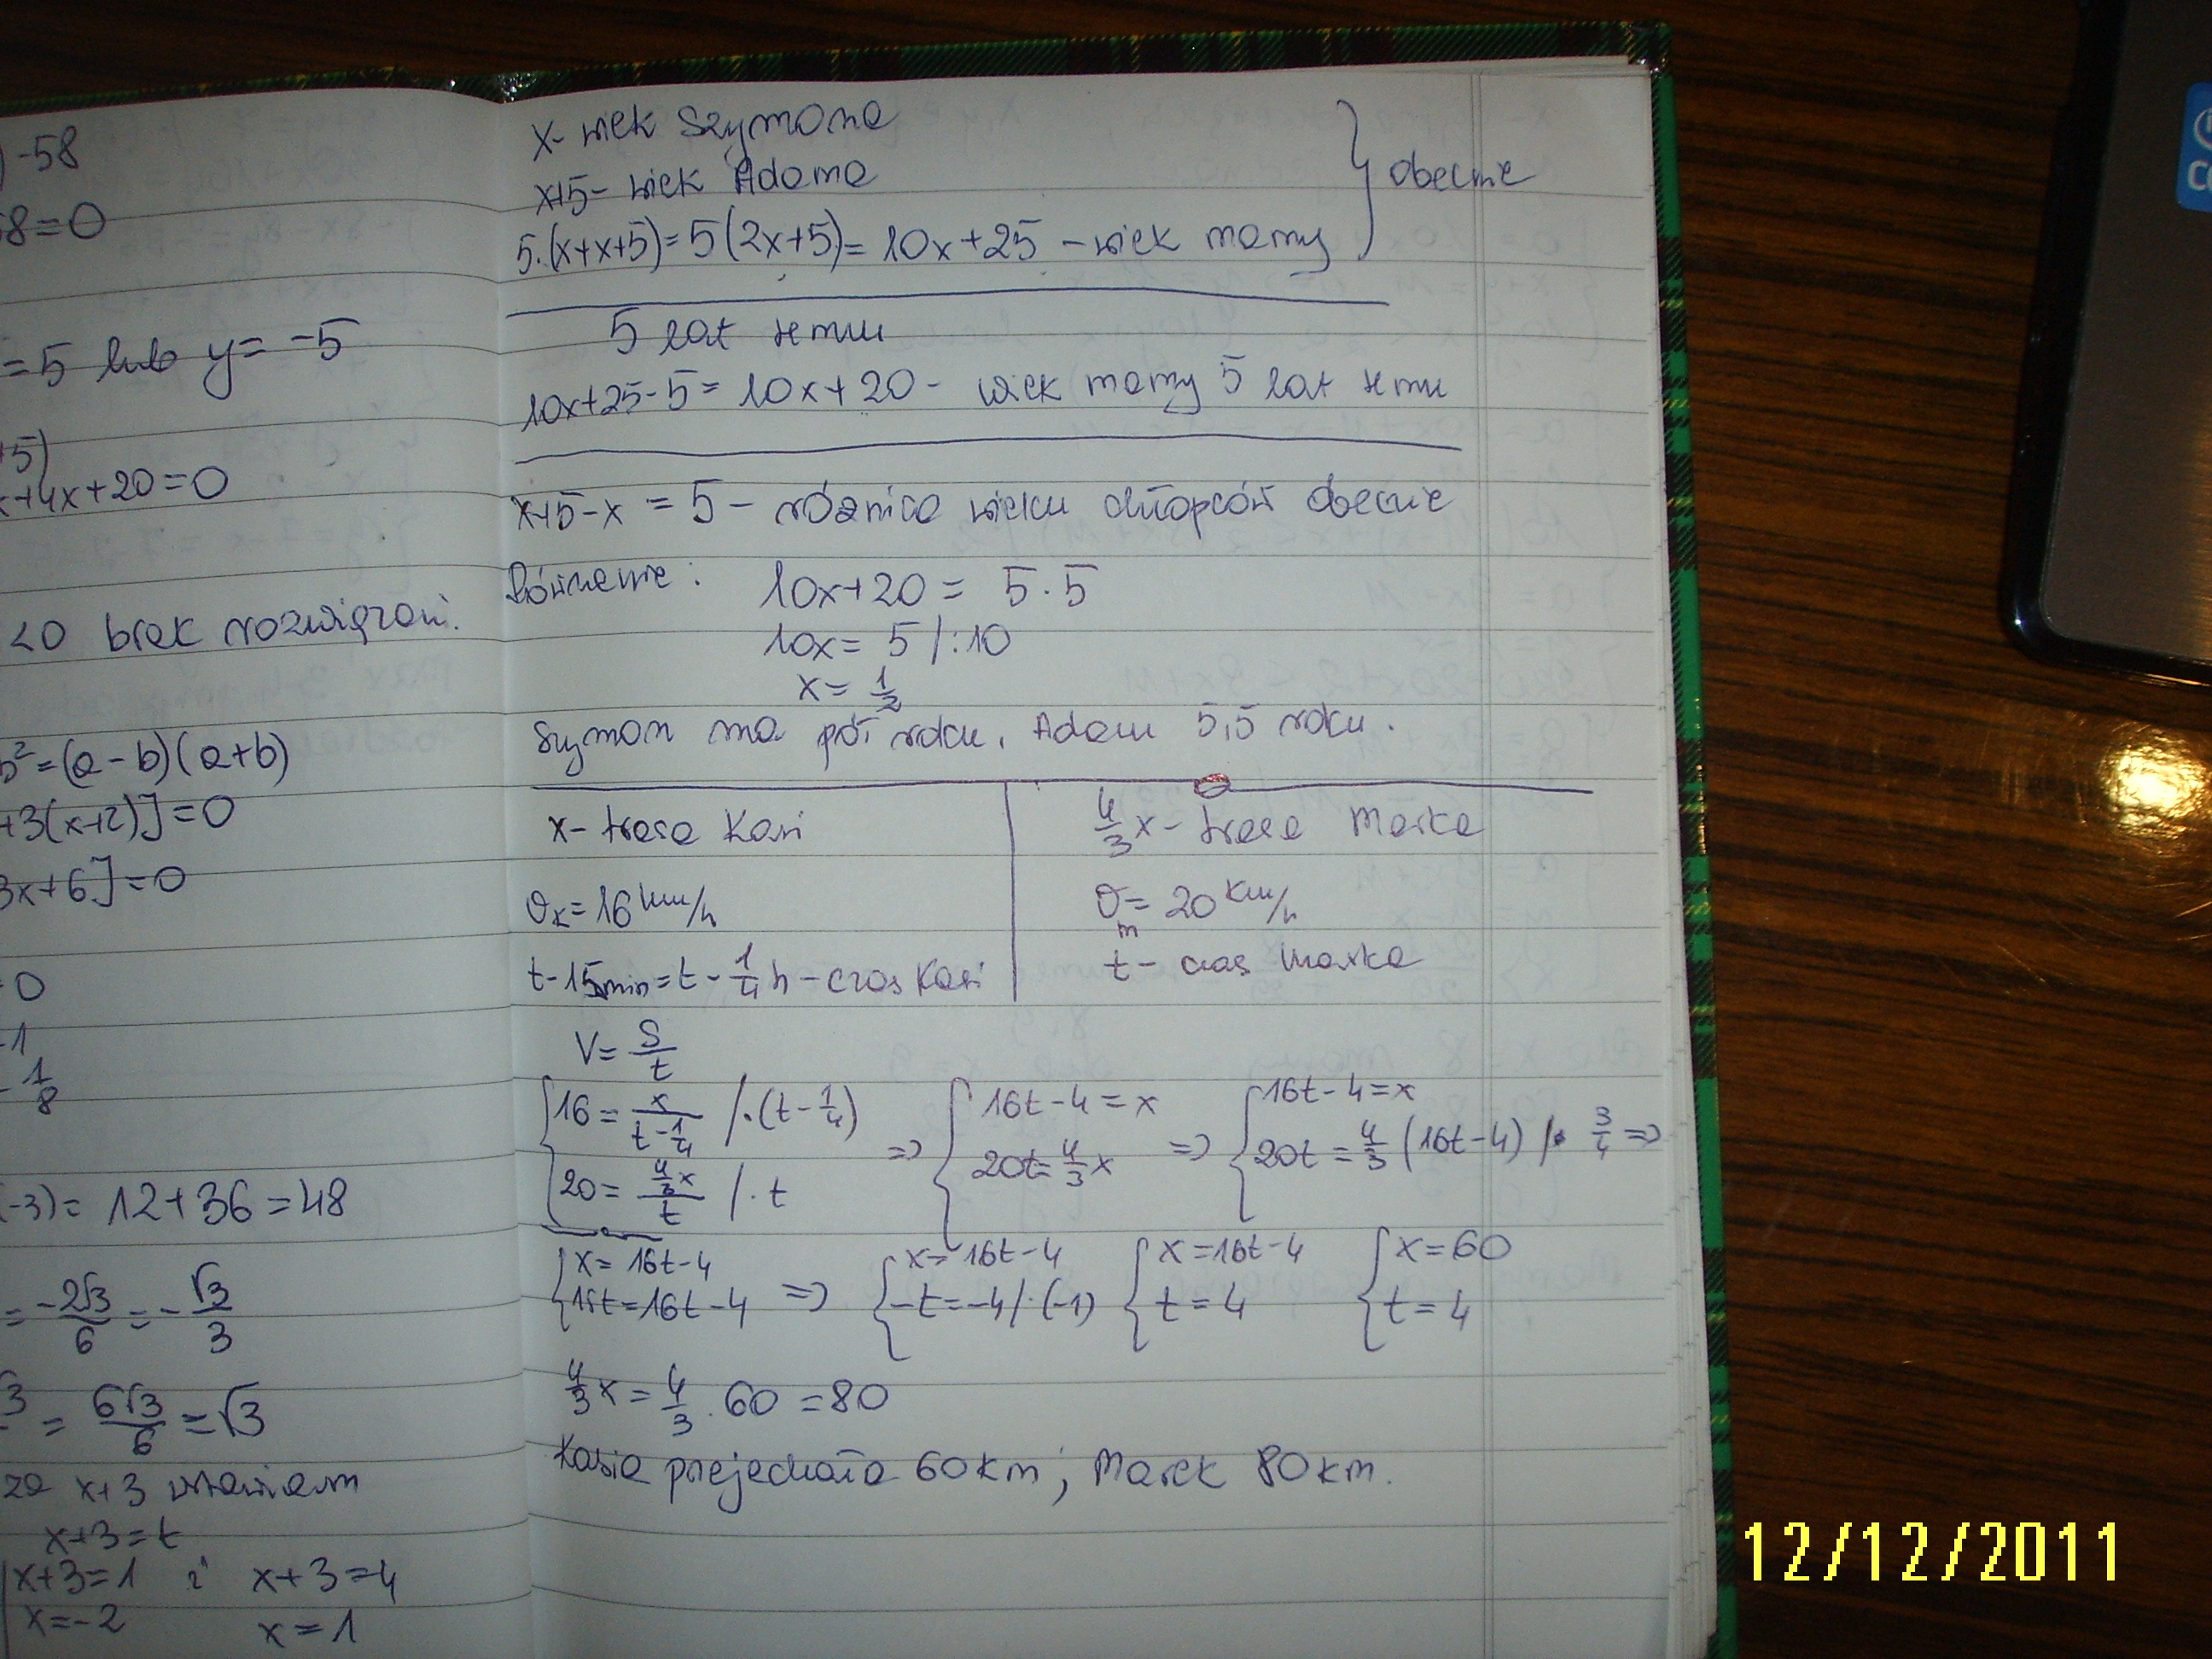 ) -58
58=0
=5 lub y= -5
+5)
x+4x+20=0
<0 brak rozwiązań.
b²=(a-b)(a+b)
+3(x+2)]=0
3x+6]=0
=0
-1
-1/8
(-3)= 12+36=48
= -2√3/6 = -√3/3
√3 = 6√3/6 = √3
za x+3 wstawiam
x+3=t
x+3=1 i x+3=4
x=-2 x=1
x- wiek Szymona
x+5- wiek Adama
5·(x+x+5)=5(2x+5)= 10x+25 - wiek mamy
} obecnie
5 lat temu
10x+25-5= 10x+20- wiek mamy 5 lat temu
x+5-x = 5- różnica wieku chłopców obecnie
Równanie: 10x+20= 5·5
10x= 5 /:10
x= 1/2
Szymon ma pół roku, Adam 5,5 roku.
x- trasa Kasi
4/3x- trasa Marka
υₖ=16 km/h
υₘ= 20 km/h
t-15min=t-1/4h-czas Kasi
t- czas Marka
V= S/t
{16= x/(t-1/4) /·(t-1/4) => {16t-4=x => {16t-4=x
{20= 4/3x/t /·t {20t=4/3x {20t=4/3(16t-4) /· 3/4 =>
{x= 16t-4 {x=16t-4 {x=16t-4 {x=60
{15t=16t-4 => {-t=-4/·(-1) {t=4 {t=4
4/3x= 4/3·60=80
Kasia przejechała 60km, Marek 80km.
12/12/2011